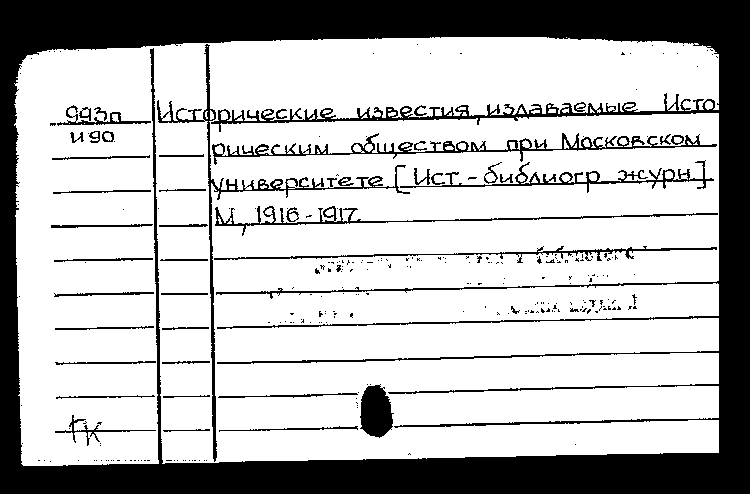 993п Исторические известия, издаваемые Исто-
И90
рическим обществом при Московском
университете. [Ист.-библиогр журн.]
М., 1916-1917.
библиотеко
ГК